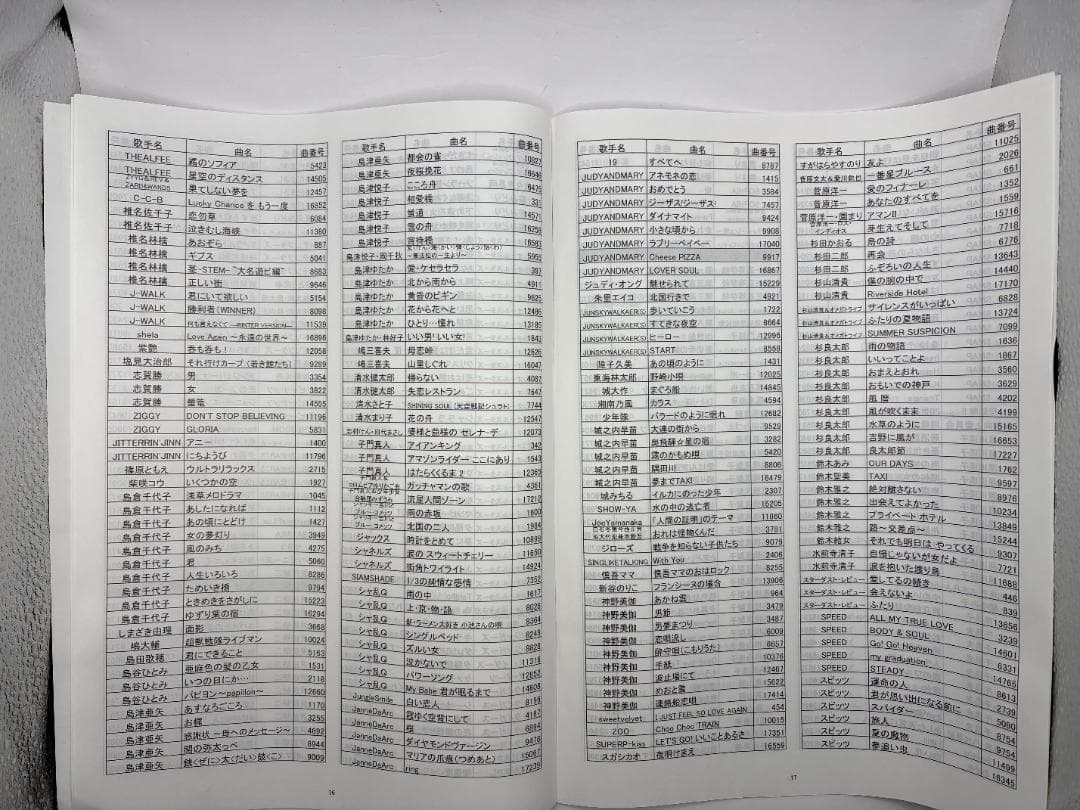 歌手名 曲名 曲番号
THEALFEE 霧のソフィア 5423
THEALFEE 星空のディスタンス 14505
果てしない夢を 12457
C-C-B Lucky Chanceをもう一度 16852
椎名佐千子 恋勿草 6084
椎名佐千子 泣きむし海峡 11380
椎名林檎 あおぞら 887
椎名林檎 ギブス 5041
椎名林檎 茎-STEM-~大名遊ビ編~ 8683
椎名林檎 正しい街 9646
J-WALK 君にいて欲しい 5154
J-WALK 勝利者(WINNER) 8098
J-WALK 何も言えなくて 11539
shela Love Again ~永遠の世界~ 16896
紫艶 呑も呑も! 12058
塩見大治郎 それ行けカープ (若き鯉たち) 9289
志賀勝 男 3354
志賀勝 女 3822
志賀勝 螢篭 14565
ZIGGY DON'T STOP BELIEVING 11196
ZIGGY GLORIA 5831
JITTERIN JINN アニー 1400
JITTERIN JINN にちようび 11796
篠原ともえ ウルトラリラックス 2715
柴咲コウ いくつかの空 1927
島倉千代子 浅草メロドラマ 1045
島倉千代子 あしたになれば 1112
島倉千代子 あの頃にとどけ 1427
島倉千代子 女の夢灯り 3949
島倉千代子 風のみち 4275
島倉千代子 君 5060
島倉千代子 人生いろいろ 8286
島倉千代子 ためいき橋 9794
島倉千代子 ときめきをさがしに 15223
島倉千代子 ゆずり葉の宿 16294
しまざき由理 面影 3668
嶋大輔 超獣戦隊ライブマン 10024
島田歌穂 君にできること 5163
島谷ひとみ 亜麻色の髪の乙女 1531
島谷ひとみ いつの日にか… 2118
島谷ひとみ パピヨン~papillon~ 12660
島津亜矢 あすなろごころ 1170
島津亜矢 お梶 3255
島津亜矢 感謝状 ~母へのメッセージ~ 4692
島津亜矢 関の弥太っぺ 8944
島津亜矢 銭(ぜに)太(だい)鼓(こ) 9009
16
歌手名 曲名 曲番号
島津亜矢 都会の雀 10827
島津亜矢 夜桜挽花 16646
島津悦子 こころ舟 6475
島津悦子 相愛橋 331
島津悦子 萌道 14571
島津悦子 雪の舟 16258
島津悦子 宵待橋 16583
島津悦子・岡千秋 5955
島津ゆたか 愛・ケセラセラ 397
島津ゆたか 北から南から 4911
島津ゆたか 黄昏のビギン 9625
島津ゆたか 花から花へと 12485
島津ゆたか ひとり…憧れ 13185
島津ゆたか・林好子 いい男!いい女! 1843
嶋三喜夫 母恋峠 12625
嶋三喜夫 山里しぐれ 16047
清水健太郎 帰らない 4082
清水健太郎 失恋レストラン 7647
清水さと子 SHINING SOUL (天空戦記シュラト) 7744
清水まり子 花の舟 12547
志村けん・田代まさし 婆様と爺様の セレナーデ 12073
子門真人 アイアンキング 342
子門真人 アマゾンライダー ここにあり 1543
子門真人 はたらくくるま2 12365
ガッチャマンの歌 4361
流星人間ゾーン 17212
ブルーコメッツ 雨の赤坂 1600
ブルーコメッツ 北国の二人 1984
ジャックス 時計をとめて 10899
シャネルズ 涙の スウィートチェリー 11650
シャネルズ 街角トワイライト 14924
SIAMSHADE 1/3の純情な感情 7352
シャ乱Q 雨の中 1617
シャ乱Q 上・京・物・語 8028
シャ乱Q 新・ラーメン大好き 小池さんの唄 8364
シャ乱Q シングルベッド 8249
シャ乱Q ズルい女 8828
シャ乱Q 泣かないで 11316
シャ乱Q パワーソング 12852
シャ乱Q My Babe 君が眠るまで 14608
JungleSmile 白い恋人 8198
JanneDaArc 霞ゆく空背にして 4147
JanneDaArc
JanneDaArc ダイヤモンドヴァージン 9418
JanneDaArc マリアの爪痕(つめあと) 15067
JanneDaArc ring 17239
歌手名 曲名 曲番号
19 すべてへ 8787
JUDYANDMARY アネモネの恋 1415
JUDYANDMARY おめでとう 3584
JUDYANDMARY ジーザス!ジーザス! 7457
JUDYANDMARY ダイナマイト 9424
JUDYANDMARY 小さな頃から 9908
JUDYANDMARY ラブリーベイベー 17040
JUDYANDMARY Cheese PIZZA 9917
JUDYANDMARY LOVER SOUL 16867
ジュディ・オング 魅せられて 15229
朱里エイコ 北国行きで 4921
JUNSKYWALKER(S) 歩いていこう 1722
JUNSKYWALKER(S) すてきな夜空 8664
JUNSKYWALKER(S) ヒーロー 12996
JUNSKYWALKER(S) START 8559
障子久美 あの頃のように 1431
東海林太郎 野崎小唄 12025
城大作 まぐろ船 14845
湘南乃風 カラス 4594
少年隊 バラードのように眠れ 12682
城之内早苗 大連の街から 9529
城之内早苗 奥飛騨☆星の宿 3282
城之内早苗 霧のかもめ唄 5420
城之内早苗 隅田川 8806
城之内早苗 夢までTAXI 16479
城みちる イルカにのった少年 2307
SHOW-YA 水の中の逃亡者 15205
JoeYamanaka 「人間の証明」のテーマ 11860
おれは怪物くんだ 3781
ジローズ 戦争を知らない子供たち 9079
SINGLIKETALKING With You 2406
慎吾ママ 慎吾ママのおはロック 8255
新谷のりこ フランシーヌの場合 13906
神野美伽 あかね雲 964
神野美伽 男爺 3479
神野美伽 男夢まつり 3487
神野美伽 恋唄流し 6009
神野美伽 御守唄(こもりうた) 6657
神野美伽 手紙 10376
神野美伽 波止場にて 12467
神野美伽 めおと雲 15622
神野美伽 連絡船恋唄 17414
sweetvelvet I JUST FEEL SO LOVE AGAIN 454
ZOO Choo Choo TRAIN 10015
SUPERP-kiss LET'S GO!いいことあるさ 17351
スガシカオ 夜明けまえ 16559
17
歌手名 曲名 曲番号
すがはらやすのり 友よ 11025
菅原文太&愛川欽也 一番星ブルース 2026
菅原洋一 愛のフィナーレ 661
菅原洋一 あなたのすべてを 1352
菅原洋一・園まり アマンII 1559
芽生えてそして 15716
杉田かおる 鳥の詩 7718
杉田二郎 再会 6776
杉田二郎 ふぞろいの人生 13643
杉山清貴 僕の腕の中で 14440
杉山清貴 Riverside Hotel 17170
杉山清貴&オメガトライブ サイレンスがいっぱい 6828
杉山清貴&オメガトライブ ふたりの夏物語 13724
杉山清貴&オメガトライブ SUMMER SUSPICION 7099
杉良太郎 雨の物語 1636
杉良太郎 いいってことよ 1867
杉良太郎 おまえとおれ 3560
杉良太郎 おもいでの神戸 3629
杉良太郎 風暦 4202
杉良太郎 風が吹くまま 4199
杉良太郎 水草のように 15165
杉良太郎 吉野に風が 16653
杉良太郎 良太郎節 17227
鈴木あみ OUR DAYS 1762
鈴木聖美 TAXI 9597
鈴木雅之 絶対離さない 8976
鈴木雅之 出会えてよかった 10234
鈴木雅之 プライベートホテル 13849
鈴木雅之 路~交差点~ 15244
鈴木結女 それでも明日は やってくる 9307
水前寺清子 自惚じゃないが女だよ 7721
水前寺清子 涙を抱いた渡り鳥 11688
スターダスト・レビュー 愛してるの続き 446
スターダスト・レビュー 会えないよ 839
スターダスト・レビュー ふたり 13656
SPEED ALL MY TRUE LOVE 3239
SPEED BODY & SOUL 14601
SPEED Go! Go! Heaven 6331
SPEED my graduation 14765
SPEED STEADY 8613
スピッツ 運命の人 2739
スピッツ 君が思い出になる前に 5090
スピッツ スパイダー 8754
スピッツ 旅人 9754
スピッツ 夏の魔物 11499
スピッツ 夢追い虫 16345